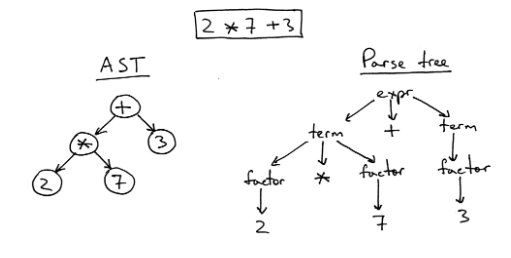 2 * 7 + 3
AST
Parse tree
+
* 3
2 7
expr
term + term
factor * factor factor
2 7 3